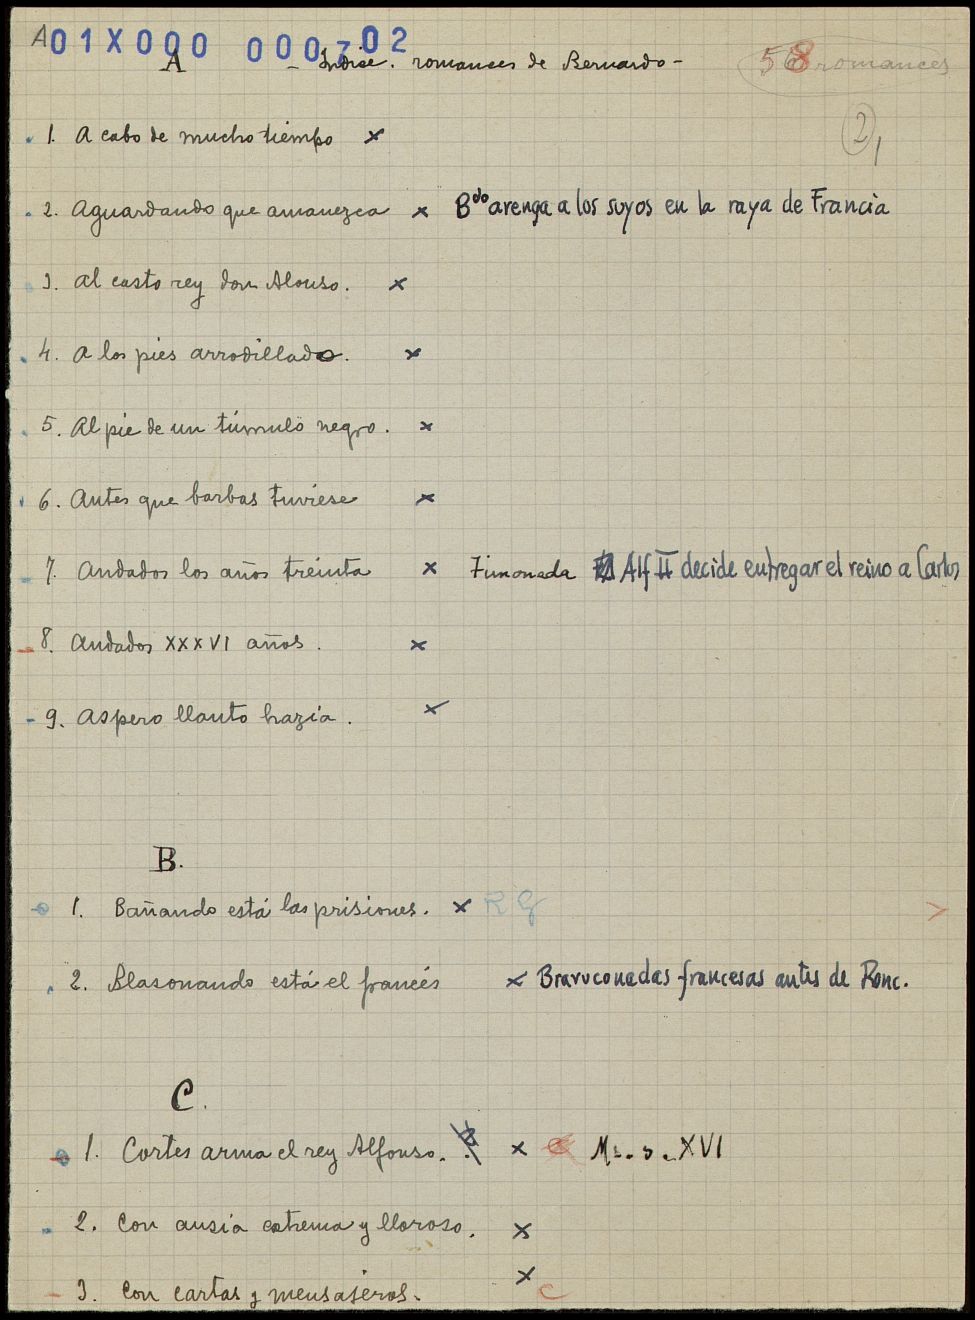 A01X000 000702
A - Indice. romances de Bernardo - 58 romances
2
1. A cabo de mucho tiempo x
2. Aguardando que amanezca x Bdo arenga a los suyos en la raya de Francia
3. Al casto rey don Alonso. x
4. A los pies arrodillado. x
5. Al pie de un túmulo negro. x
6. Antes que barbas tuviese x
7. Andados los años treinta x Timonada Alf II decide entregar el reino a Carlos
8. Andados XXXVI años. x
9. Aspero llanto hazia. x
B.
1. Bañando está las prisiones. x R G
2. Blasonando está el francés x Bravuconadas francesas antes de Ronc.
C.
1. Cortes arma el rey Alfonso. x Ms. s. XVI
2. Con ansia extrema y lloroso. x
3. Con cartas y mensajeros. x C